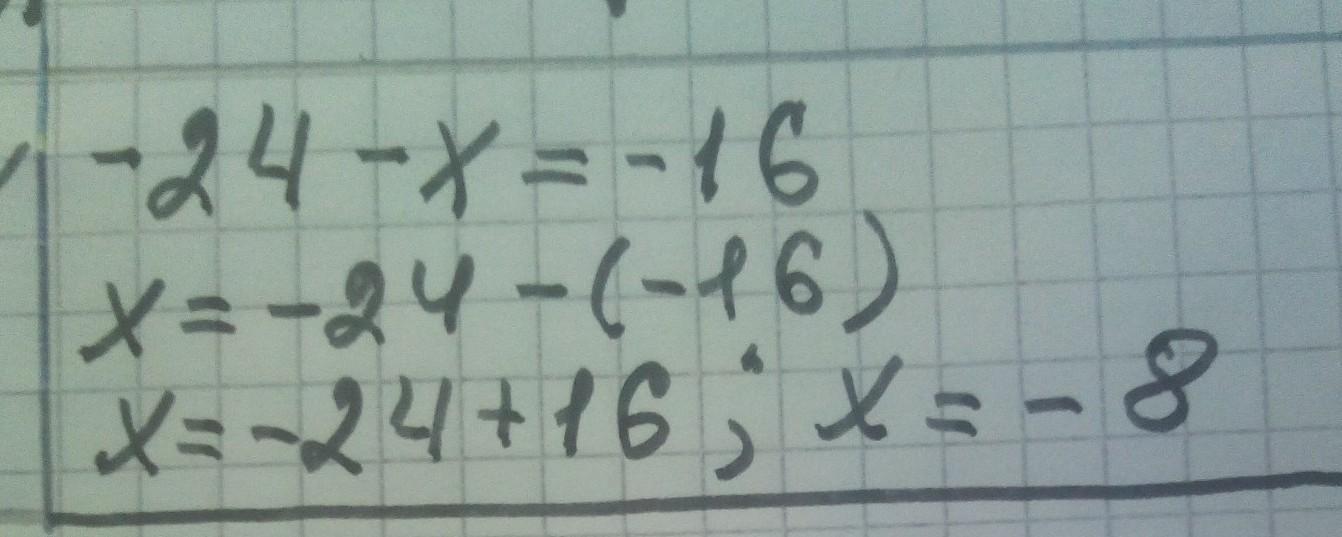 -24-x=-16
x=-24-(-16)
x=-24+16; x=-8